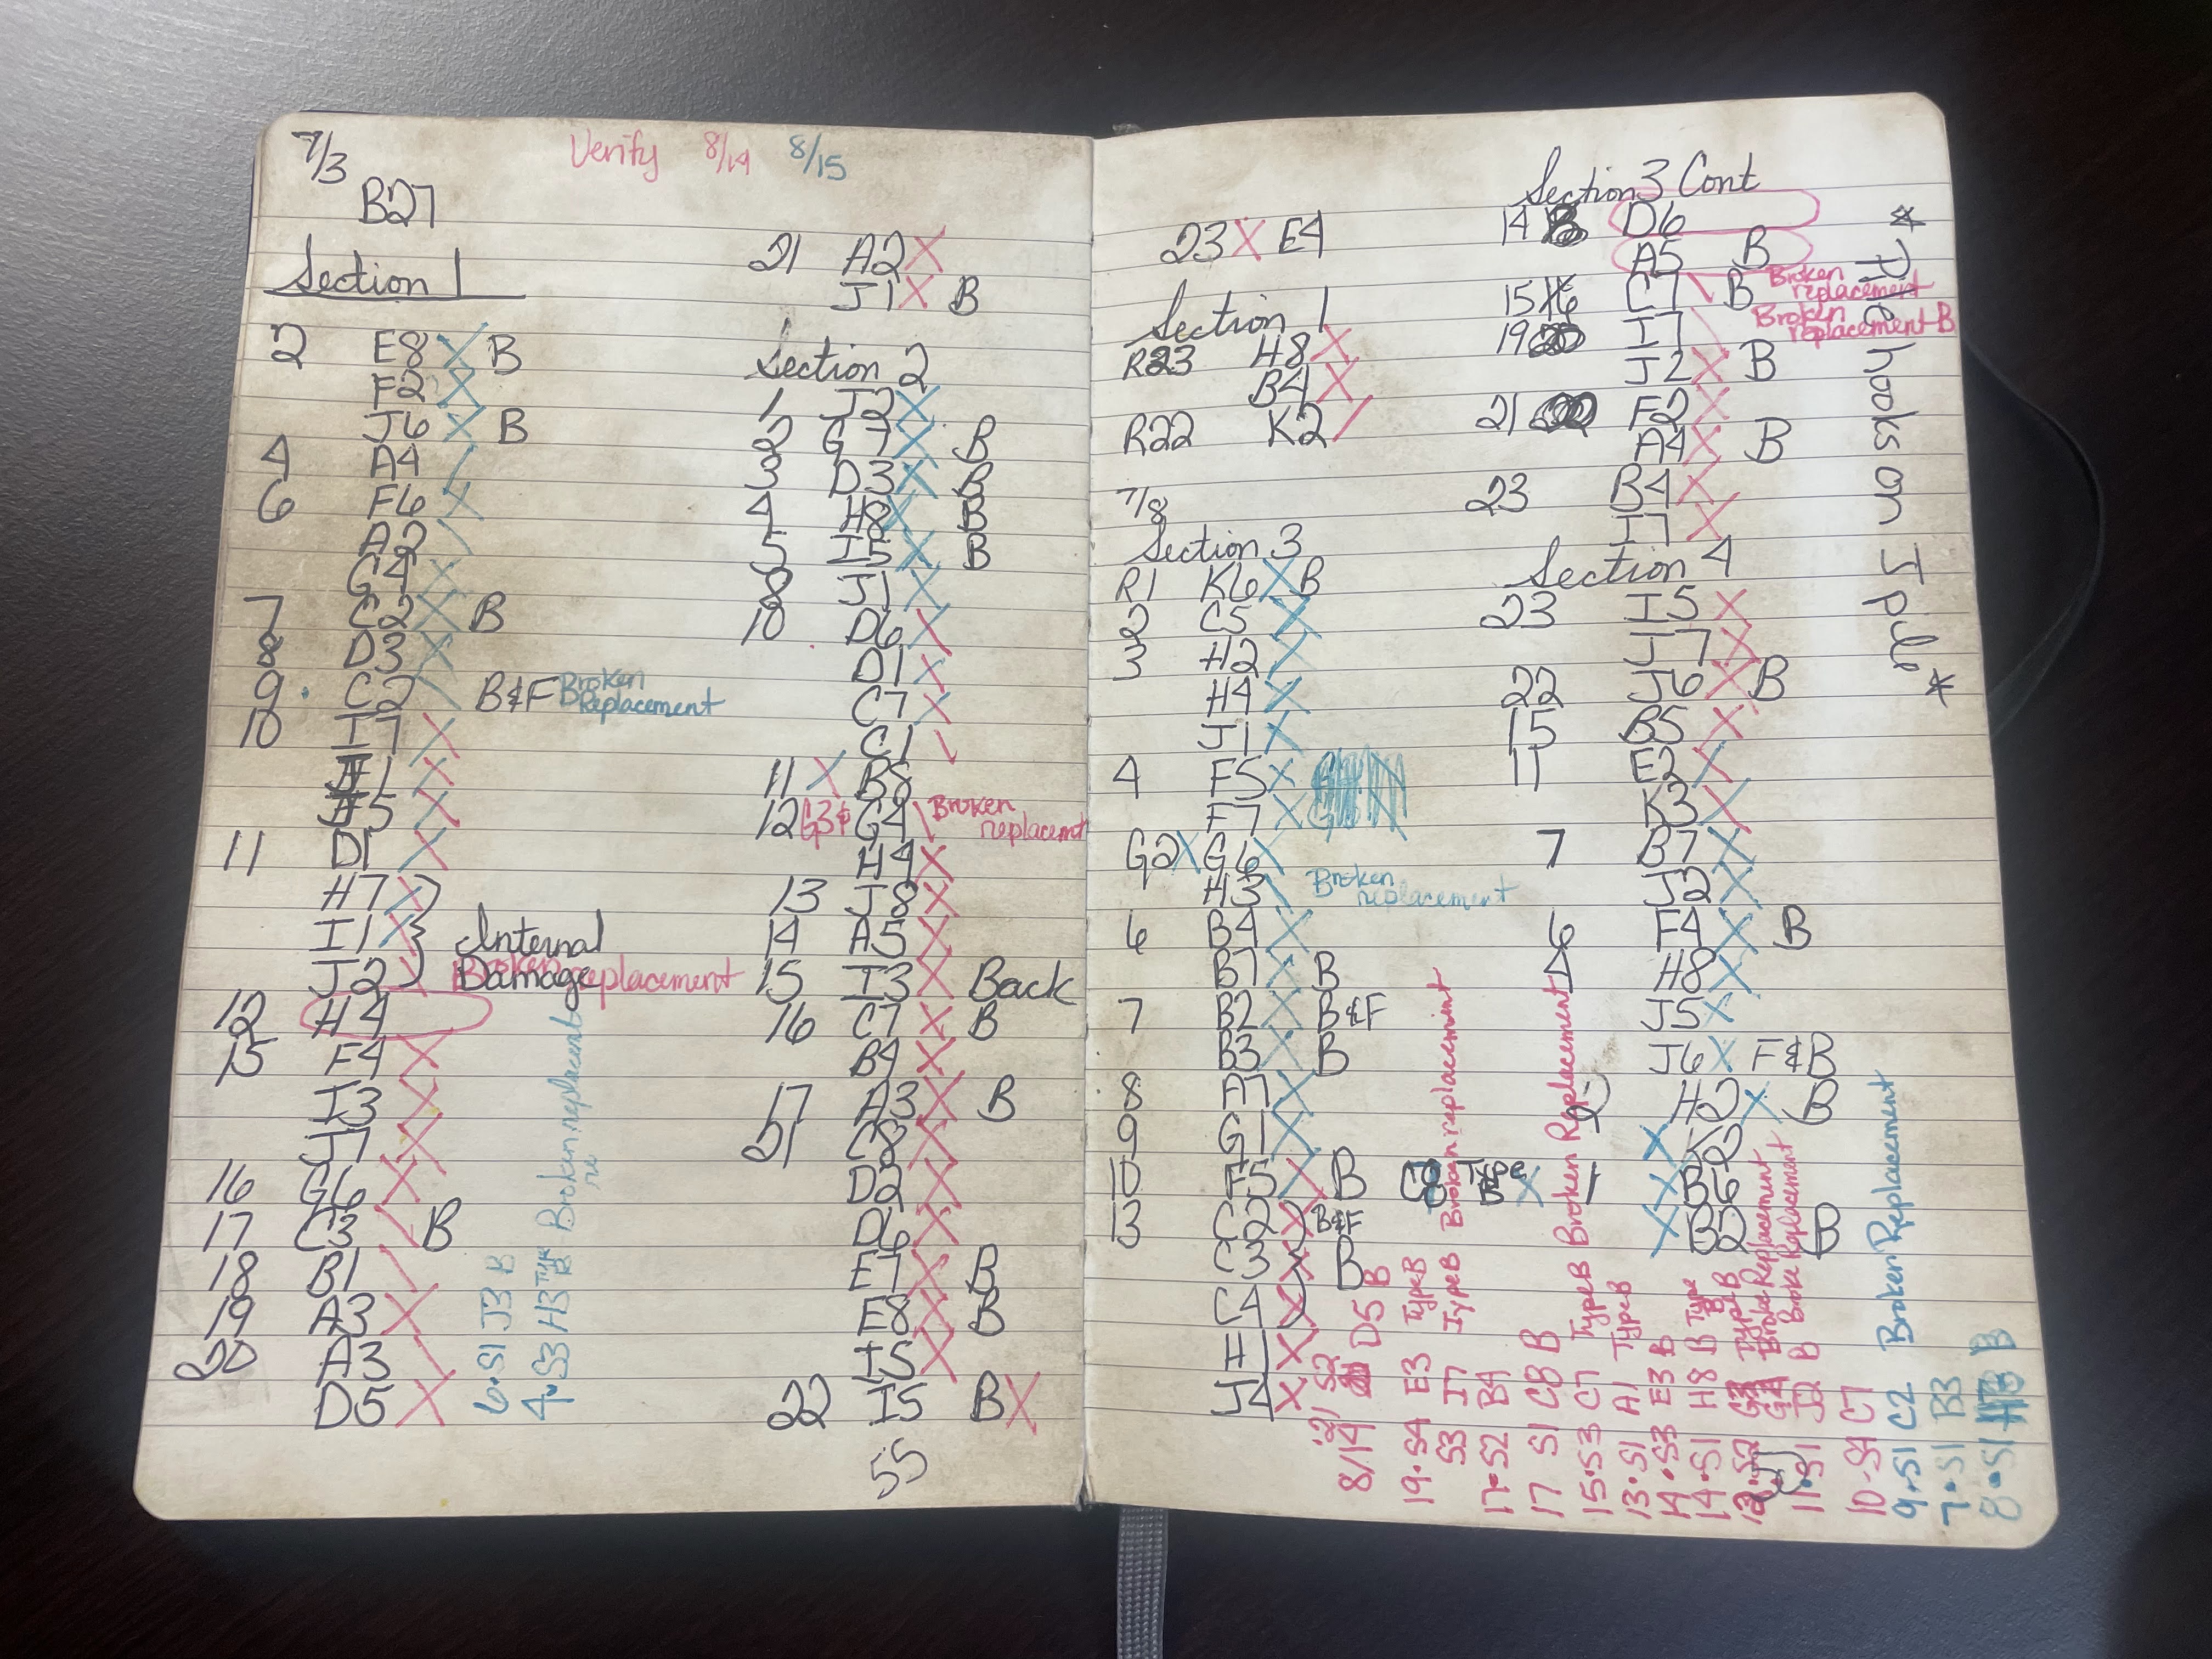 7/3
Verify 8/14 8/15
B27
Section 1
2 E8 X B
F2 X
J6 X B
4 A4 /
6 F6 X
A2 \
G4 X
7 C2 X B
8 D3 X
9 · C2 \ B&F Broken Replacement
10 I7 X
X
X
11 D1 X
H7 X
I1 X Internal
J2 \ Damage Broken replacement
12 H4
15 F4 X
I3 X
J7 X
16 G6 X
17 C3 \ B
18 B1 \
19 A3 X
20 A3 \
D5 X
6·S1 J3 B
4·S3 H3 Type B Broken replacement
21 A2 X
J1 X B
Section 2
1 J2 X
2 G7 X B
3 D3 X B
4 H8 X B
5 I5 X B
8 J1 X
10 D6 X
D1 X
C7 X
C1 \
11 X B8
12 G3 & G4 \ Broken
replacemt
H4 X
13 J8 X
14 A5 X
15 I3 X Back
16 C7 X B
B4 X
17 A3 X B
21 C8 X
D2 X
D6 X
E7 X B
E8 X B
I5 X
22 I5 B X
55
23 X E4
Section 1
R23 H8 X
B4 X
R22 K2 /
7/8
Section 3
R1 K6 X B
2 C5 X
3 H2 /
H4 X
J1 X
4 F5 X
F7 X
G2 X G6 X
H3 \ Broken
replacement
6 B4 X
B7 X B
7 B2 X B&F
B3 X B
8 A7 X
9 G1 X
10 F5 X B C8 Type B X
13 C2 X B&F
C3 X B
C4 X
H1 X
J4 X
Section 3 Cont
14 D6
A5 B
15 C7 \ B Broken
replacement
19 I7 \ Broken
replacement B
J2 X B
21 F2 X
A4 X B
23 B4 X
I7 X
Section 4
23 I5 X
J7 X
22 J6 X B
15 B5 X
11 E2 X
K3 X
7 B7 X
J2 X
6 F4 X B
4 H8 X
J5 X
J6 X F&B
2 H2 X B
X K2
1 X B6
X B2 B
* Ride hooks on J pile *
8/14 21 S2 D5 B
19·S4 E3 Type B
S3 I7 Type B Broken replacement
17·S2 B4
17 S1 C8 B
15·S3 C7 Type B Broken Replacement
13·S1 A1 Type B
14·S3 E3 B
14·S1 H8 B Type B
12·S2 G3 Type B
G4 Broke Replacement
11·S1 J2 B Broke Replacement
10-S4 C7
9·S1 C2 Broken Replacement
7·S1 B3
8·S1 B